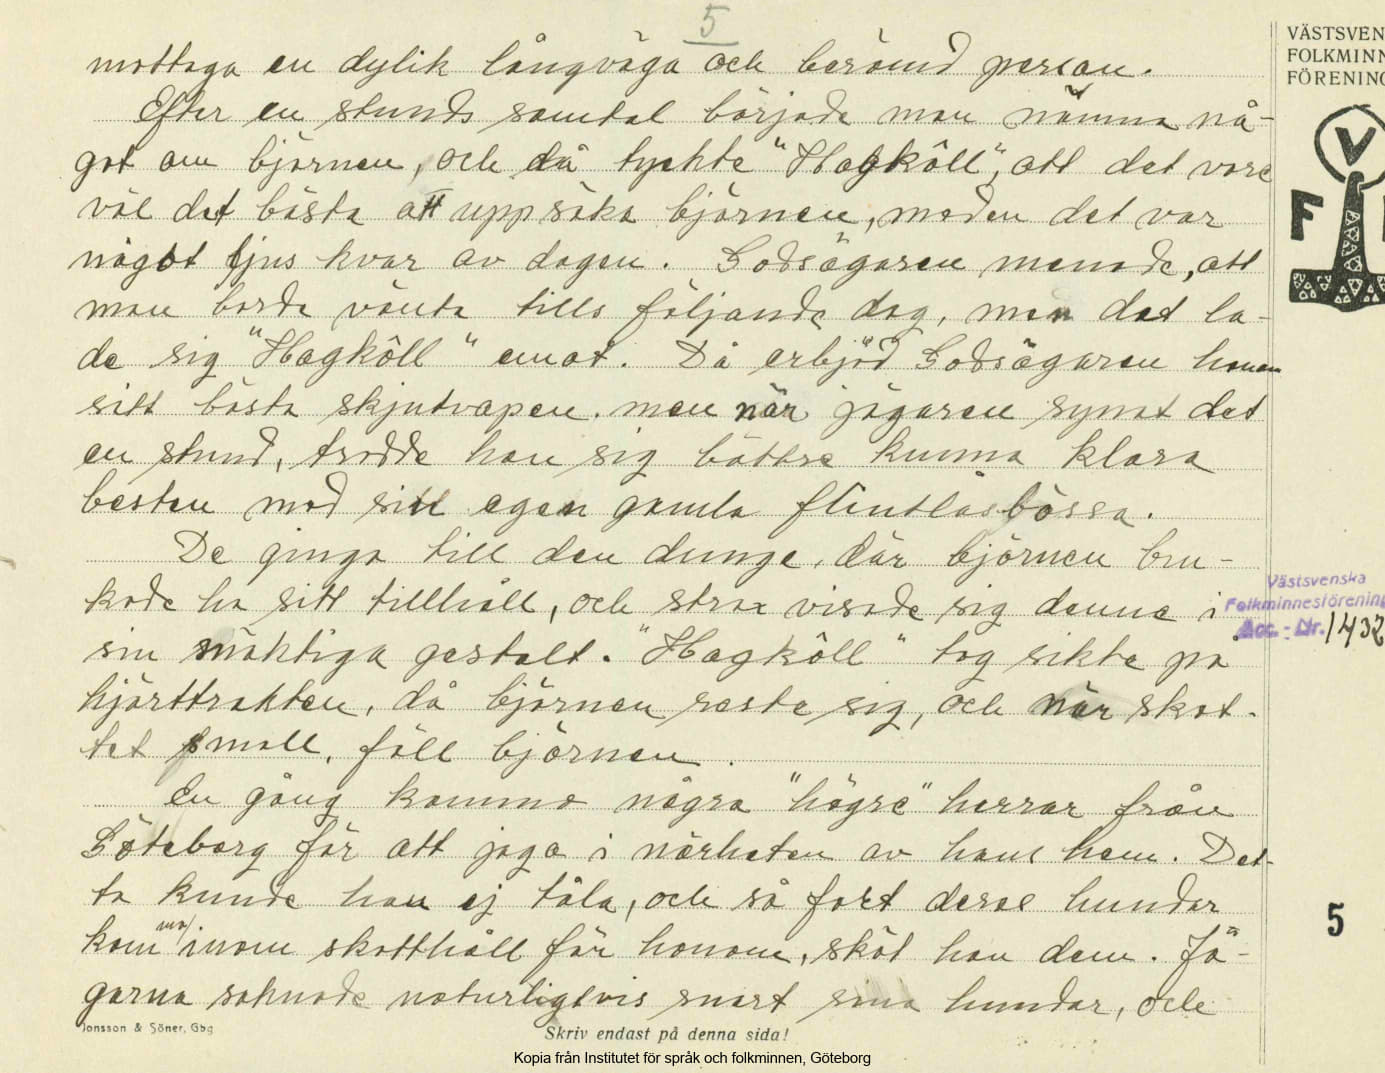 5
mottaga en dylik långväga och berömd person.
Efter en stunds samtal började man nämna nå-
got om björnen, och då tyckte "Hagköll", att det vore
väl det bästa att uppsöka björnen, medan det var
något ljus kvar av dagen. Godsägaren menade, att
man borde vänta tills följande dag, men det la-
de sig "Hagköll" emot. Då erbjöd Godsägaren honom
sitt bästa skjutvapen. men när jägaren synat det
en stund, trodde han sig bättre kunna klara
besten med sitt egen gamla flintlåsbössa.
De gingo till den dunge, där björnen bru-
kade ha sitt tillhåll, och strax visade sig denne i
sin mäktiga gestalt. "Hagköll" tog sikte på
hjärttrakten, då björnen reste sig, och när skot-
tet small, föll björnen.
En gång kommo några "högre" herrar från
Göteborg för att jaga i närheten av hans hem. Det-
ta kunde han ej tåla, och så fort deras hundar
kommo inom skotthåll för honom, sköt han dem. Jä-
garna saknade naturligtvis snart sina hundar, och
Jonsson & Söner, Gbg
Skriv endast på denna sida!
Kopia från Institutet för språk och folkminnen, Göteborg
VÄSTSVEN
FOLKMINN
FÖRENING
V
F
Västsvenska
Folkminnesförening
Acc.-Nr. 1432
5